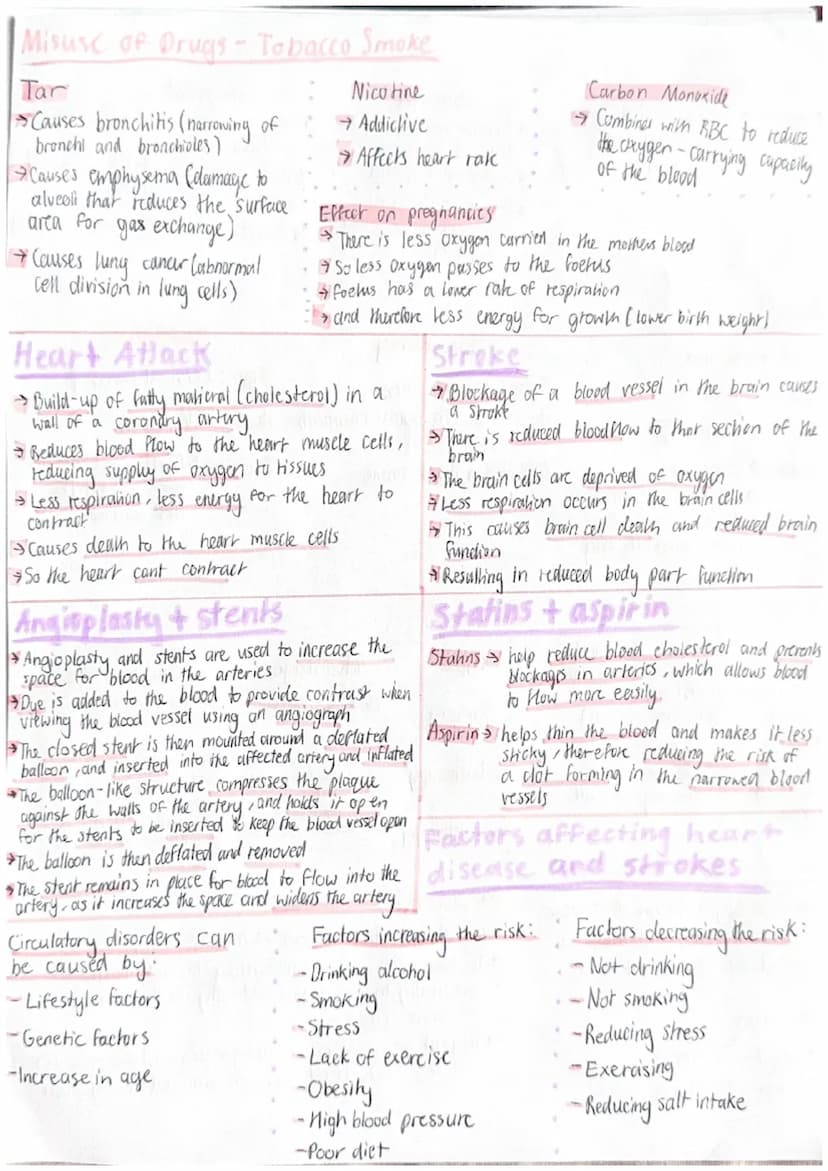 Misuse of Drugs - Tobacco Smoke
Tar
→ Causes bronchitis (narrowing of
bronchi and bronchioles)
→ Causes emphysema (damage to
alveoli that reduces the surface
area for gas exchange)
→ Causes lung cancer (abnormal
cell division in lung cells)
Nicotine
→ Addictive
→ Affects heart rate
Carbon Monoxide
→ Combines with RBC to reduce
the oxygen-carrying capacity
of the blood
Effect on pregnancies
→ There is less oxygen carried in the mothers blood
→ So less oxygen passes to the foetus
→ foetus has a lower rate of respiration
→ and therefore less energy for growth (lower birth weight)
Heart Attack
→ Build-up of fatty material (cholesterol) in a
wall of a coronary artery
→ Reduces blood flow to the heart muscle cells,
reducing supply of oxygen to tissues
→ Less respiration, less energy for the heart to
contract
→ Causes death to the heart muscle cells
→ So the heart cant contract
Stroke
→ Blockage of a blood vessel in the brain causes
a stroke
→ There is reduced bloodflow to that section of the
brain
→ The brain cells are deprived of oxygen
→ Less respiration occurs in the brain cells
→ This causes brain cell death and reduced brain
function
→ Resulting in reduced body part function
Angioplasty + stents
→ Angioplasty and stents are used to increase the
space for blood in the arteries
→ Due is added to the blood to provide contrast when
viewing the blood vessel using an angiograph
→ The closed stent is then mounted around a deflated
balloon, and inserted into the affected artery and inflated
→ The balloon-like structure compresses the plaque
against the walls of the artery, and holds it open
for the stents to be inserted to keep the blood vessel open
→ The balloon is then deflated and removed
→ The stent remains in place for blood to flow into the
artery, as it increases the space and widens the artery
Statins + aspirin
Statins → help reduce blood cholesterol and prevents
blockages in arteries, which allows blood
to flow more easily.
Aspirin → helps thin the blood and makes it less
sticky, therefore reducing the risk of
a clot forming in the narrowed blood
vessels
Factors affecting heart
disease and strokes
Circulatory disorders can
be caused by:
- Lifestyle factors
- Genetic factors
- Increase in age
Factors increasing the risk:
- Drinking alcohol
- Smoking
- Stress
- Lack of exercise
- Obesity
- High blood pressure
- Poor diet
Factors decreasing the risk:
- Not drinking
- Not smoking
- Reducing stress
- Exercising
- Reducing salt intake